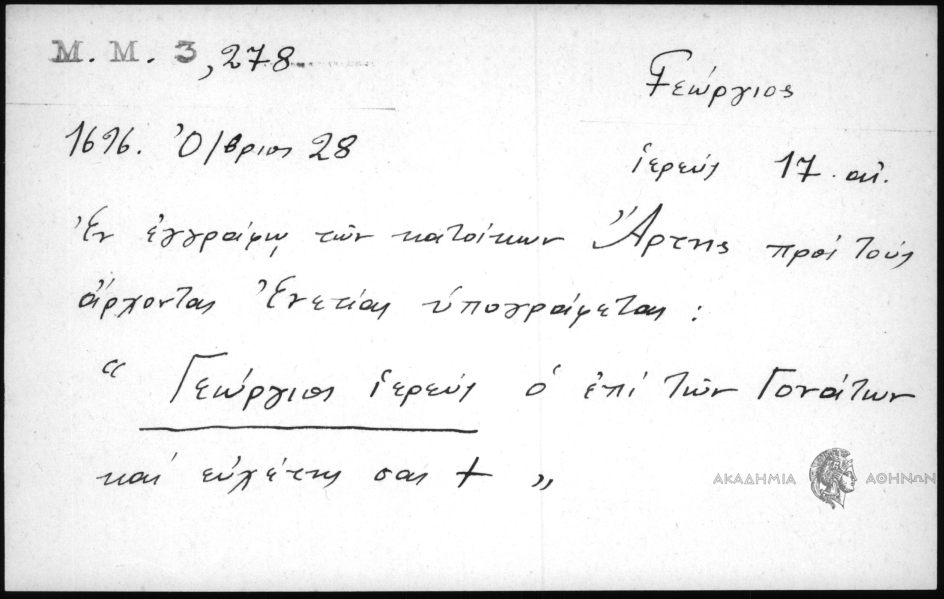 Μ. Μ. 3, 278
Γεώργιος
1696. Ὀ/βριος 28
ἱερεύς 17 αἰ.
Ἐν ἐγγράφῳ τῶν κατοίκων Ἄρτης πρός τούς
ἄρχοντας Ἐνετίας ὑπογράφεται :
“ Γεώργιος ἱερεύς ὁ ἐπί τῶν Γονάτων
καί εὐχέτης σας + „
ΑΚΑΔΗΜΙΑ ΑΘΗΝΩΝ